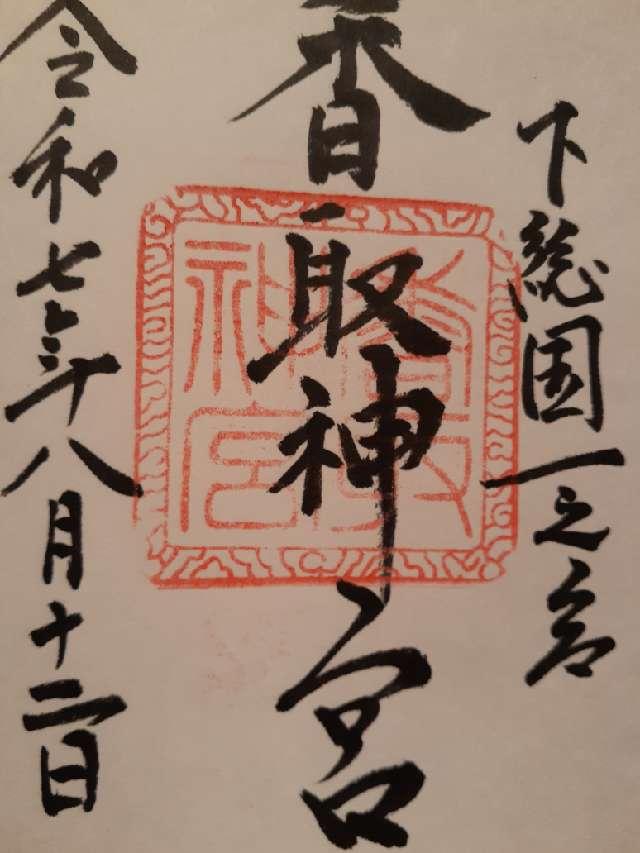 下総国一之宮
香取神宮
香取神宮
令和七年八月十二日